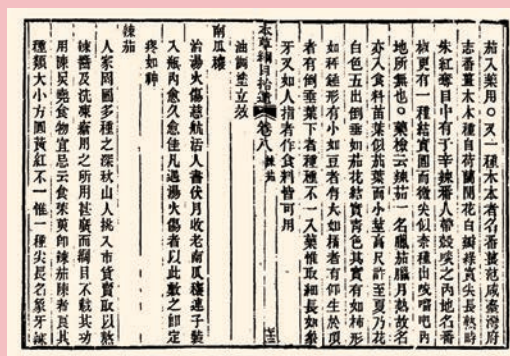 茄入藥用○又一種木本者名番薑范咸臺灣府
志番薑木本種自荷蘭開花白瓣綠實尖長熟時
朱紅奪目中有子辛辣番人帶殼啖之內地名番
椒更有一種結實圓而微尖似柰種出咬𠺕吧內
地所無也○藥檢云辣茄一名臘茄臘月熟故名
亦入食料苗葉似茄葉而小莖高尺許至夏乃花
白色五出倒垂如茄花結實青色其實有如柿形
如秤錘形有小如豆者有大如橘者有仰生於頂
者有倒垂葉下者種種不一入藥惟取細長如象
牙又如人指者作食料皆可用
本草綱目拾遺 卷八 辣茄
油調塗立效
南瓜瓤
治湯火傷慈航活人書伏月收老南瓜瓤連子裝
入瓶內愈久愈佳凡遇湯火傷者以此敷之即定
疼如神
辣茄
人家園圃多種之深秋山人挑入市貨賣取以熬
辣醬及洗凍瘡用之所用甚廣而綱目不載其功
用陳炅堯食物宜忌云食茱萸即辣茄陳者良其
種類大小方圓黃紅不一惟一種尖長名象牙辣